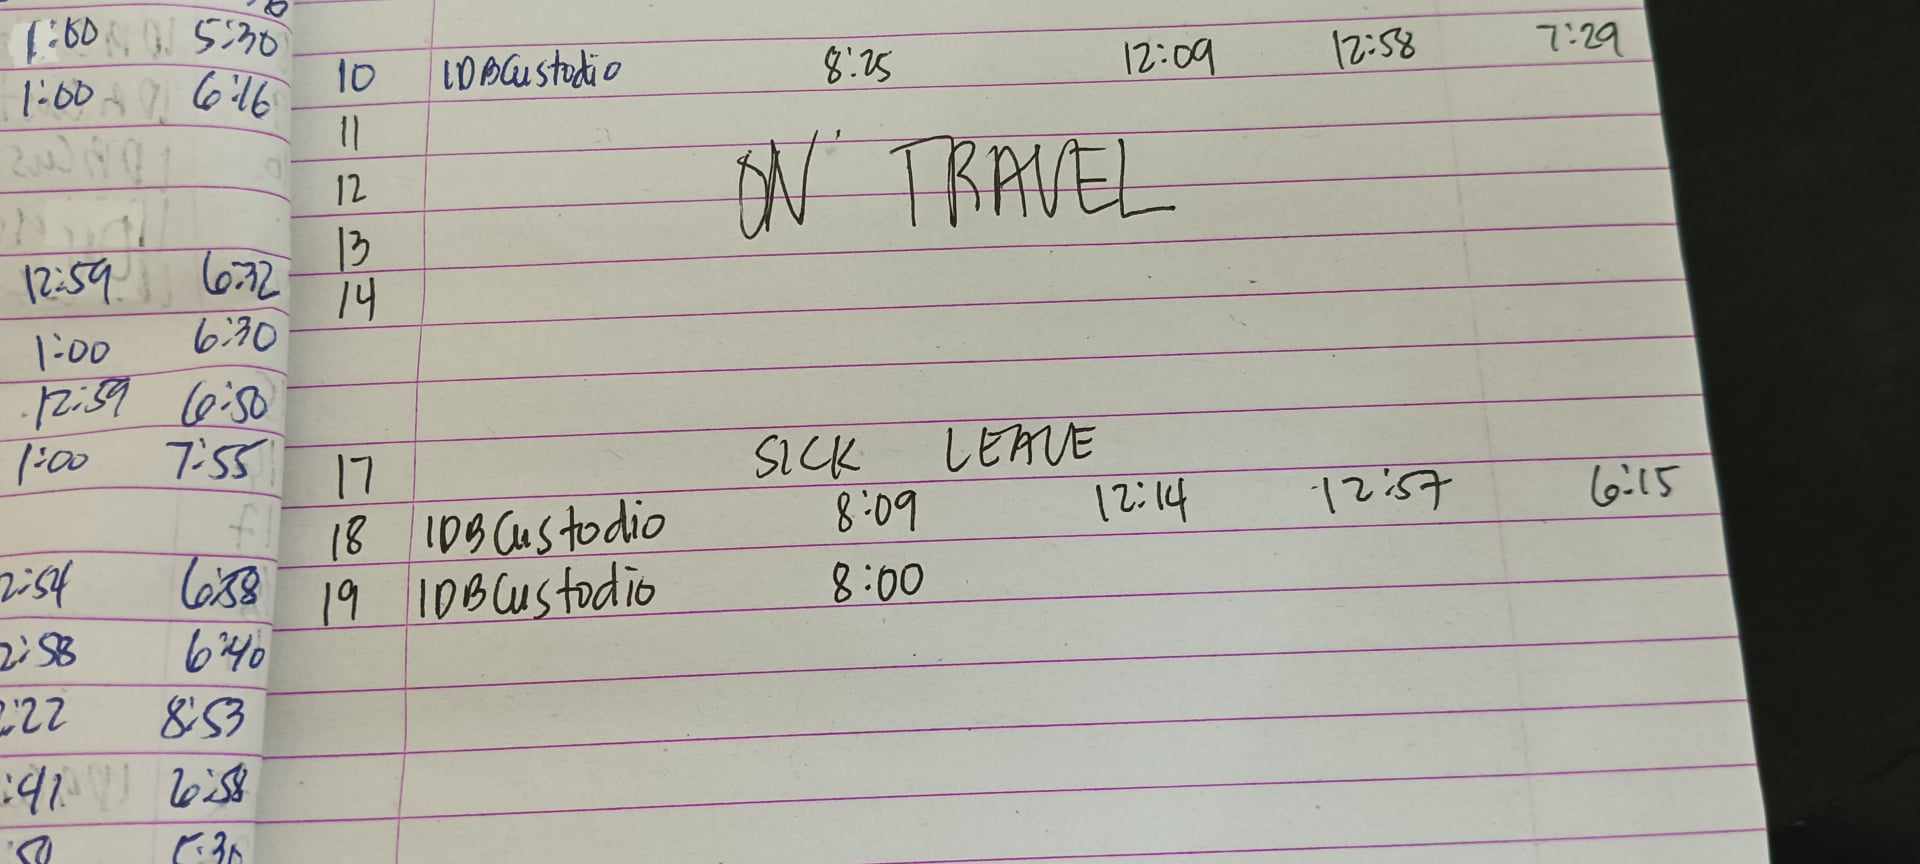 1:00 5:30
1:00 6:16
12:59 6:32
1:00 6:30
12:59 6:50
1:00 7:55
2:54 6:58
2:58 6:40
:22 8:53
:41 6:58
:50 5:30
10 IDBCustodio 8:25 12:09 12:58 7:29
11
12 ON TRAVEL
13
14
17 SICK LEAVE
18 IDBCustodio 8:09 12:14 12:57 6:15
19 IDBCustodio 8:00